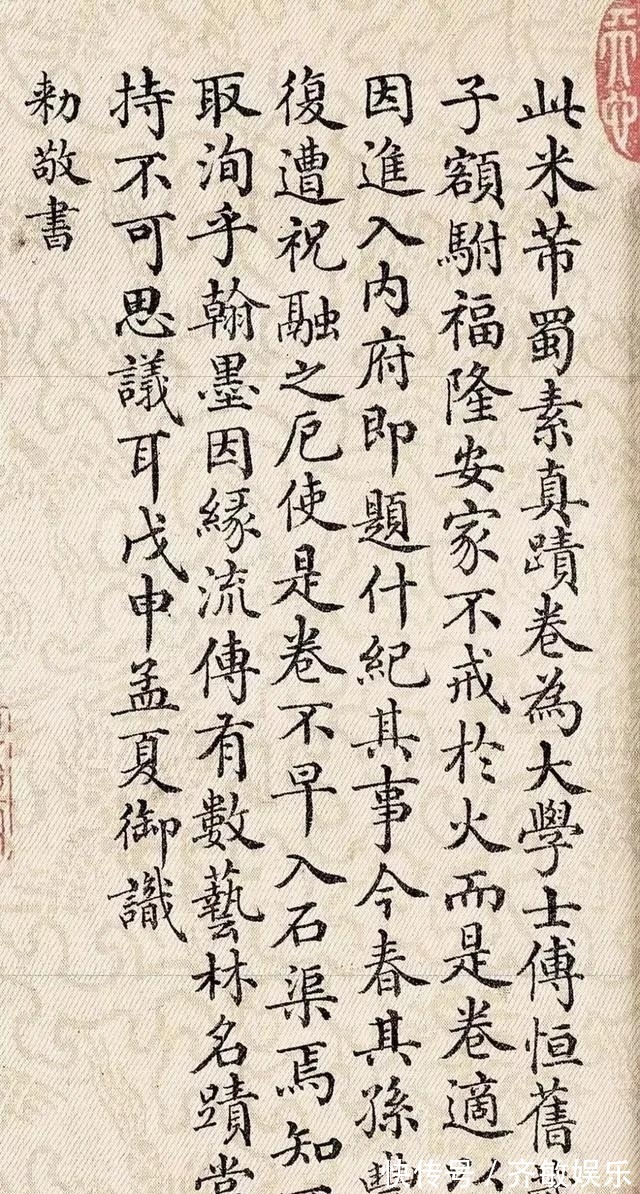 此米芾蜀素真蹟卷為大學士傅恒舊
子額駙福隆安家不戒於火而是卷適
因進入內府即題什紀其事今春其孫
復遭祝融之厄使是卷不早入石渠焉知
取洵乎翰墨因緣流傳有數藝林名蹟
持不可思議耳戊申孟夏御識
勅敬書
快传号／齐敏娱乐